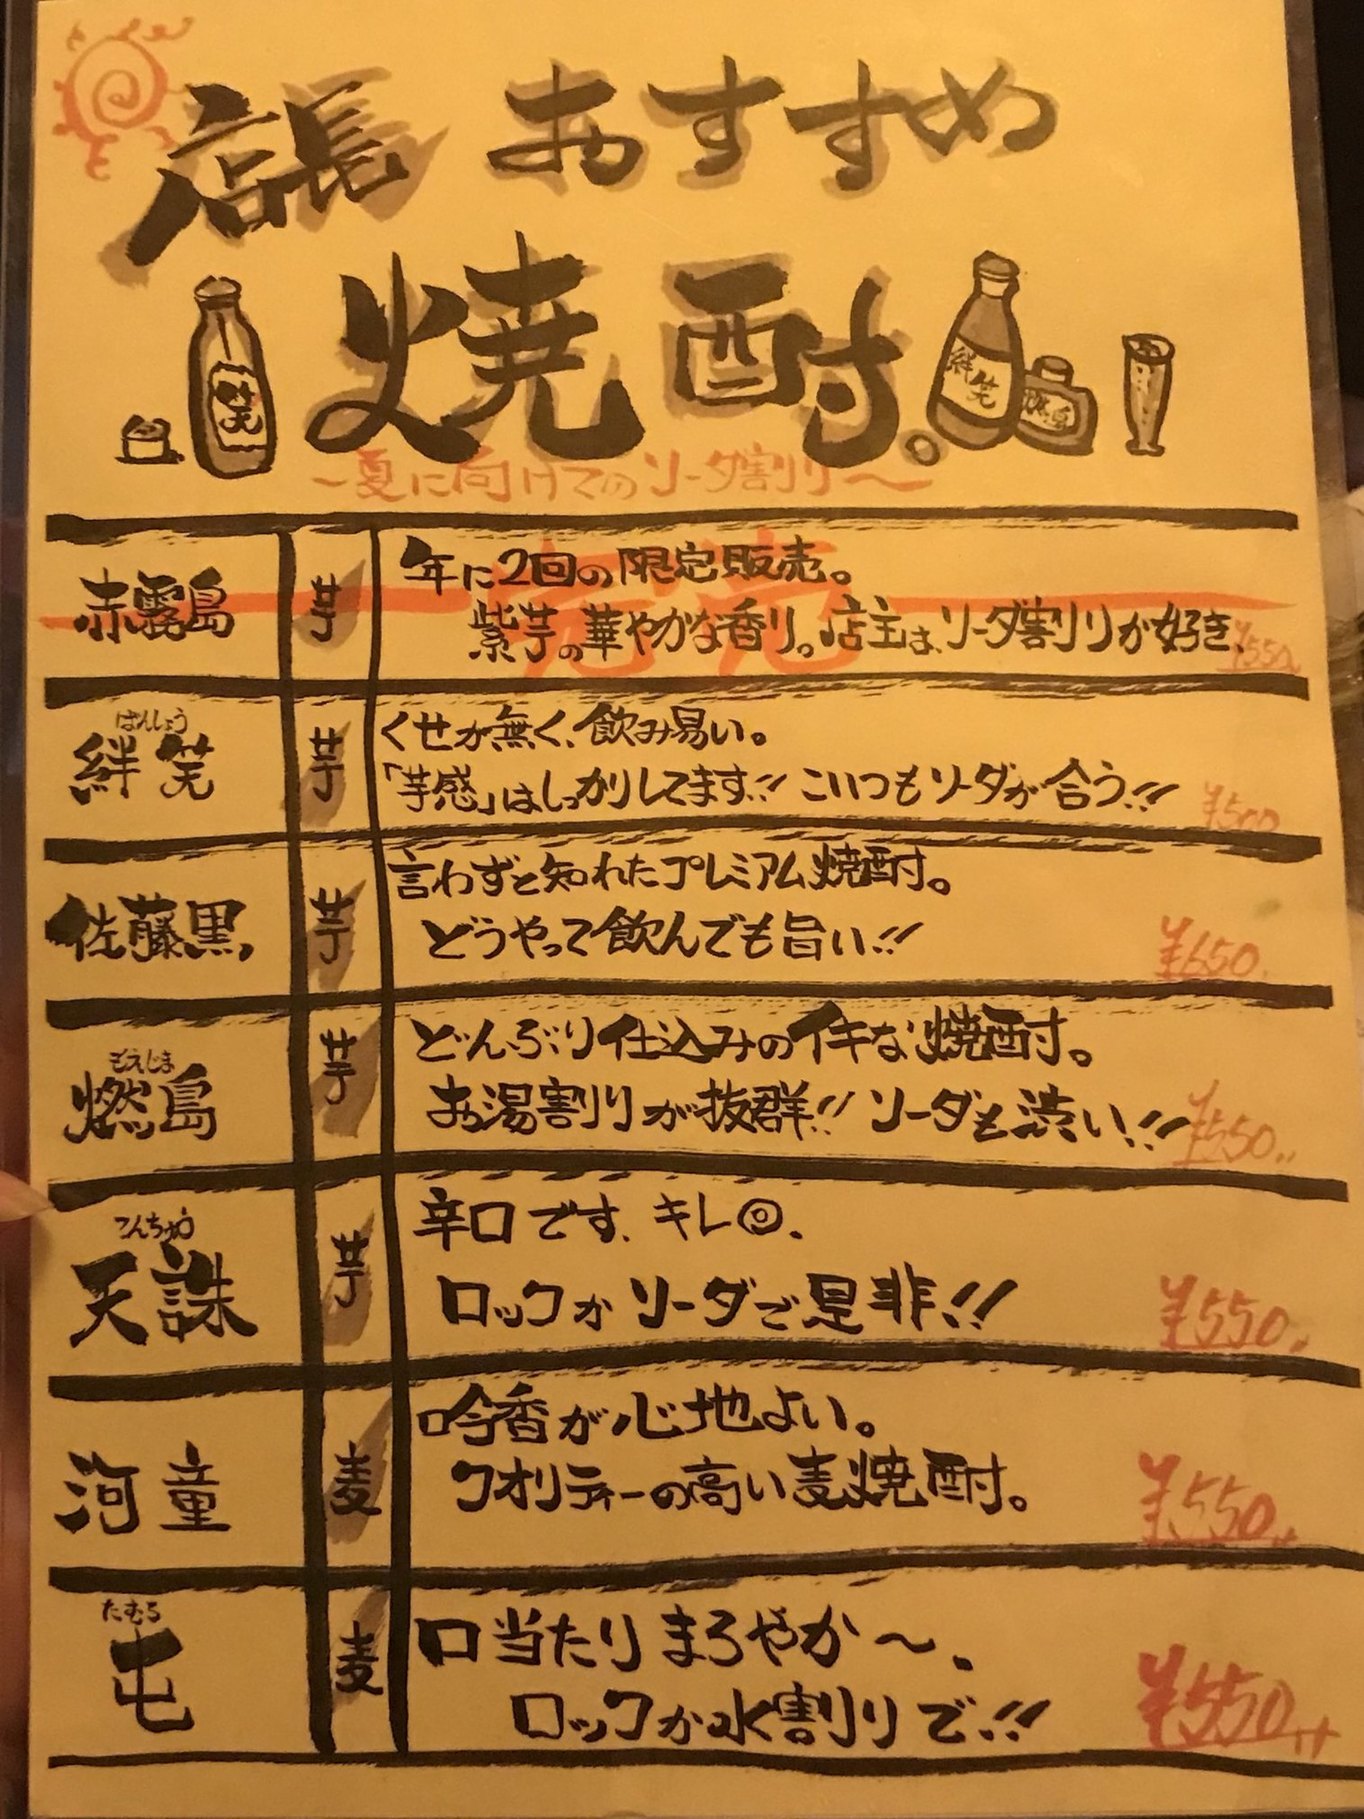 店長 おすすめ
焼酎。
笑
絆笑
燃島
~夏に向けてのソーダ割り~
赤霧島 芋 年に2回の限定販売。
紫芋の華やかな香り。店主は、ソーダ割りが好き、 ¥550
完売
はんしょう
絆笑 芋 くせが無く、飲み易い。
「芋感」はしっかりしてます!! こいつもソーダが合う!! ¥500
佐藤黒 芋 言わずと知れたプレミアム焼酎。
どうやって飲んでも旨い!! ¥650
もえじま
燃島 芋 どんぶり仕込みのイキな焼酎。
お湯割りが抜群!! ソーダも渋い!! ¥550
てんちゅう
天誅 芋 辛口です、キレ◎、
ロックかソーダで是非!! ¥550
河童 麦 吟香が心地よい。
クオリティーの高い麦焼酎。 ¥550
たむろ
屯 麦 口当たりまろやか~、
ロックか水割りで!! ¥550